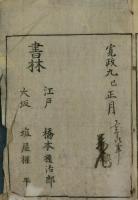 寛政九巳正月
書林
江戸
橋本徳治郎
大坂
塩屋權平